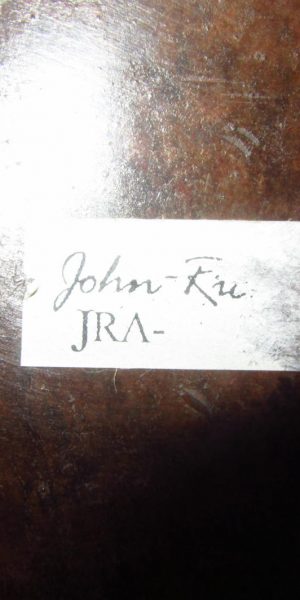 John-Ku
JRA-